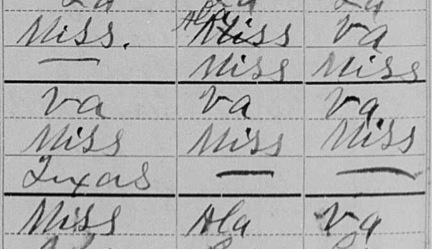 Miss. Ala Miss Va
— Miss Miss
Va Va Va
Miss Miss Miss
Texas — —
Miss Ala Va